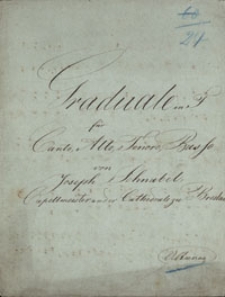 60
21
Graduale in F
für
Canto, Alto, Tenore, Basso
von
Joseph Schnabel
Capellmeister an der Cathedrale zu